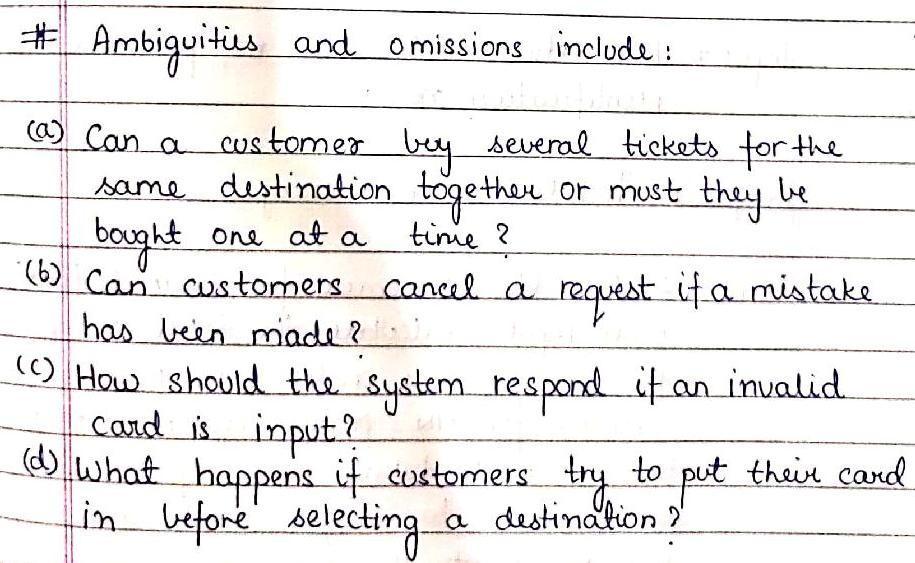 # Ambiguities and omissions include :
(a) Can a customer buy several tickets for the
same destination together or must they be
bought one at a time ?
(b) Can customers cancel a request if a mistake
has been made ?
(c) How should the system respond if an invalid
card is input ?
(d) What happens if customers try to put their card
in before selecting a destination ?